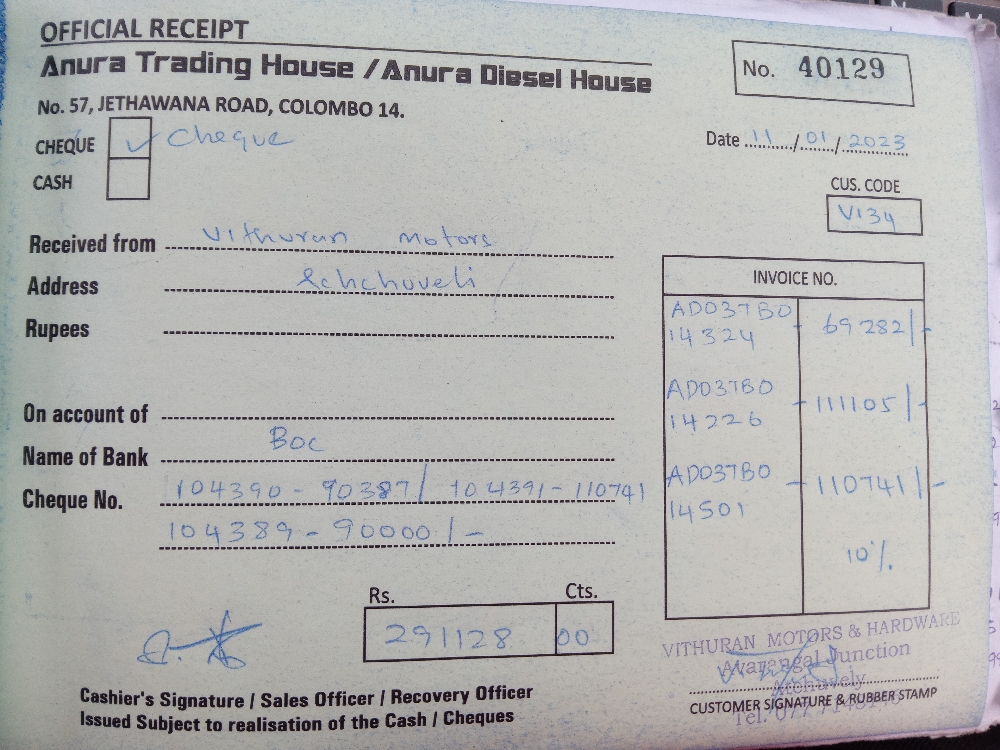 OFFICIAL RECEIPT
Anura Trading House / Anura Diesel House
No. 57, JETHAWANA ROAD, COLOMBO 14.
No. 40129
CHEQUE ✓ Cheque
CASH
Date 11/01/2023
CUS. CODE
V134
Received from Vithuran Motors
Address Achchuveli
Rupees
On account of
Name of Bank BOC
Cheque No. 104390 - 90387/ 104391 - 110741
104389 - 90000/-
INVOICE NO.
AD037B0 14324 - 69282/-
AD037B0 14226 - 111105/-
AD037B0 14501 - 110741/-
10%
Rs. Cts.
291128 00
Cashier's Signature / Sales Officer / Recovery Officer
Issued Subject to realisation of the Cash / Cheques
VITHURAN MOTORS & HARDWARE
Avarangal Junction
Atchuvely
CUSTOMER SIGNATURE & RUBBER STAMP
Tel.